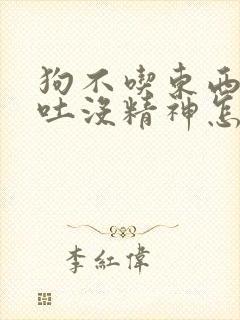 狗不喫東西
吐沒精神怎
李紅偉